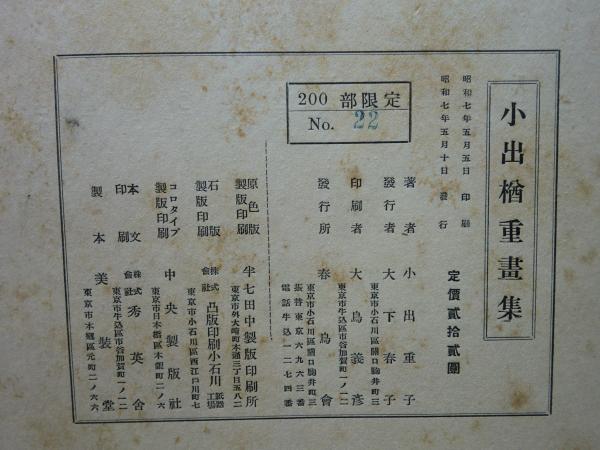 小出楢重畫集
昭和七年五月五日 印刷
昭和七年五月十日 發行
定價貳拾貳圓
200 部限定
No. 22
著者 小出重子
發行者 大下春子
東京市小石川區關口駒井町三
印刷者 大鳥義彦
東京市牛込區市谷加賀町一ノ一二
發行所 春鳥會
東京市小石川區關口駒井町三
振替東京六九六三番
電話牛込一二七四番
原色版製版印刷 半七田中製版印刷所
東京市外大崎町本通三丁目五八二
石版製版印刷 株式會社 凸版印刷小石川工場
東京市小石川區西江戸川町七
コロタイプ製版印刷 中央製版社
東京市日本橋區本銀町二ノ六
本文印刷 株式會社 秀英舎
東京市牛込區市谷加賀町一ノ一二
製本 美裝堂
東京市本郷區元町二ノ六六